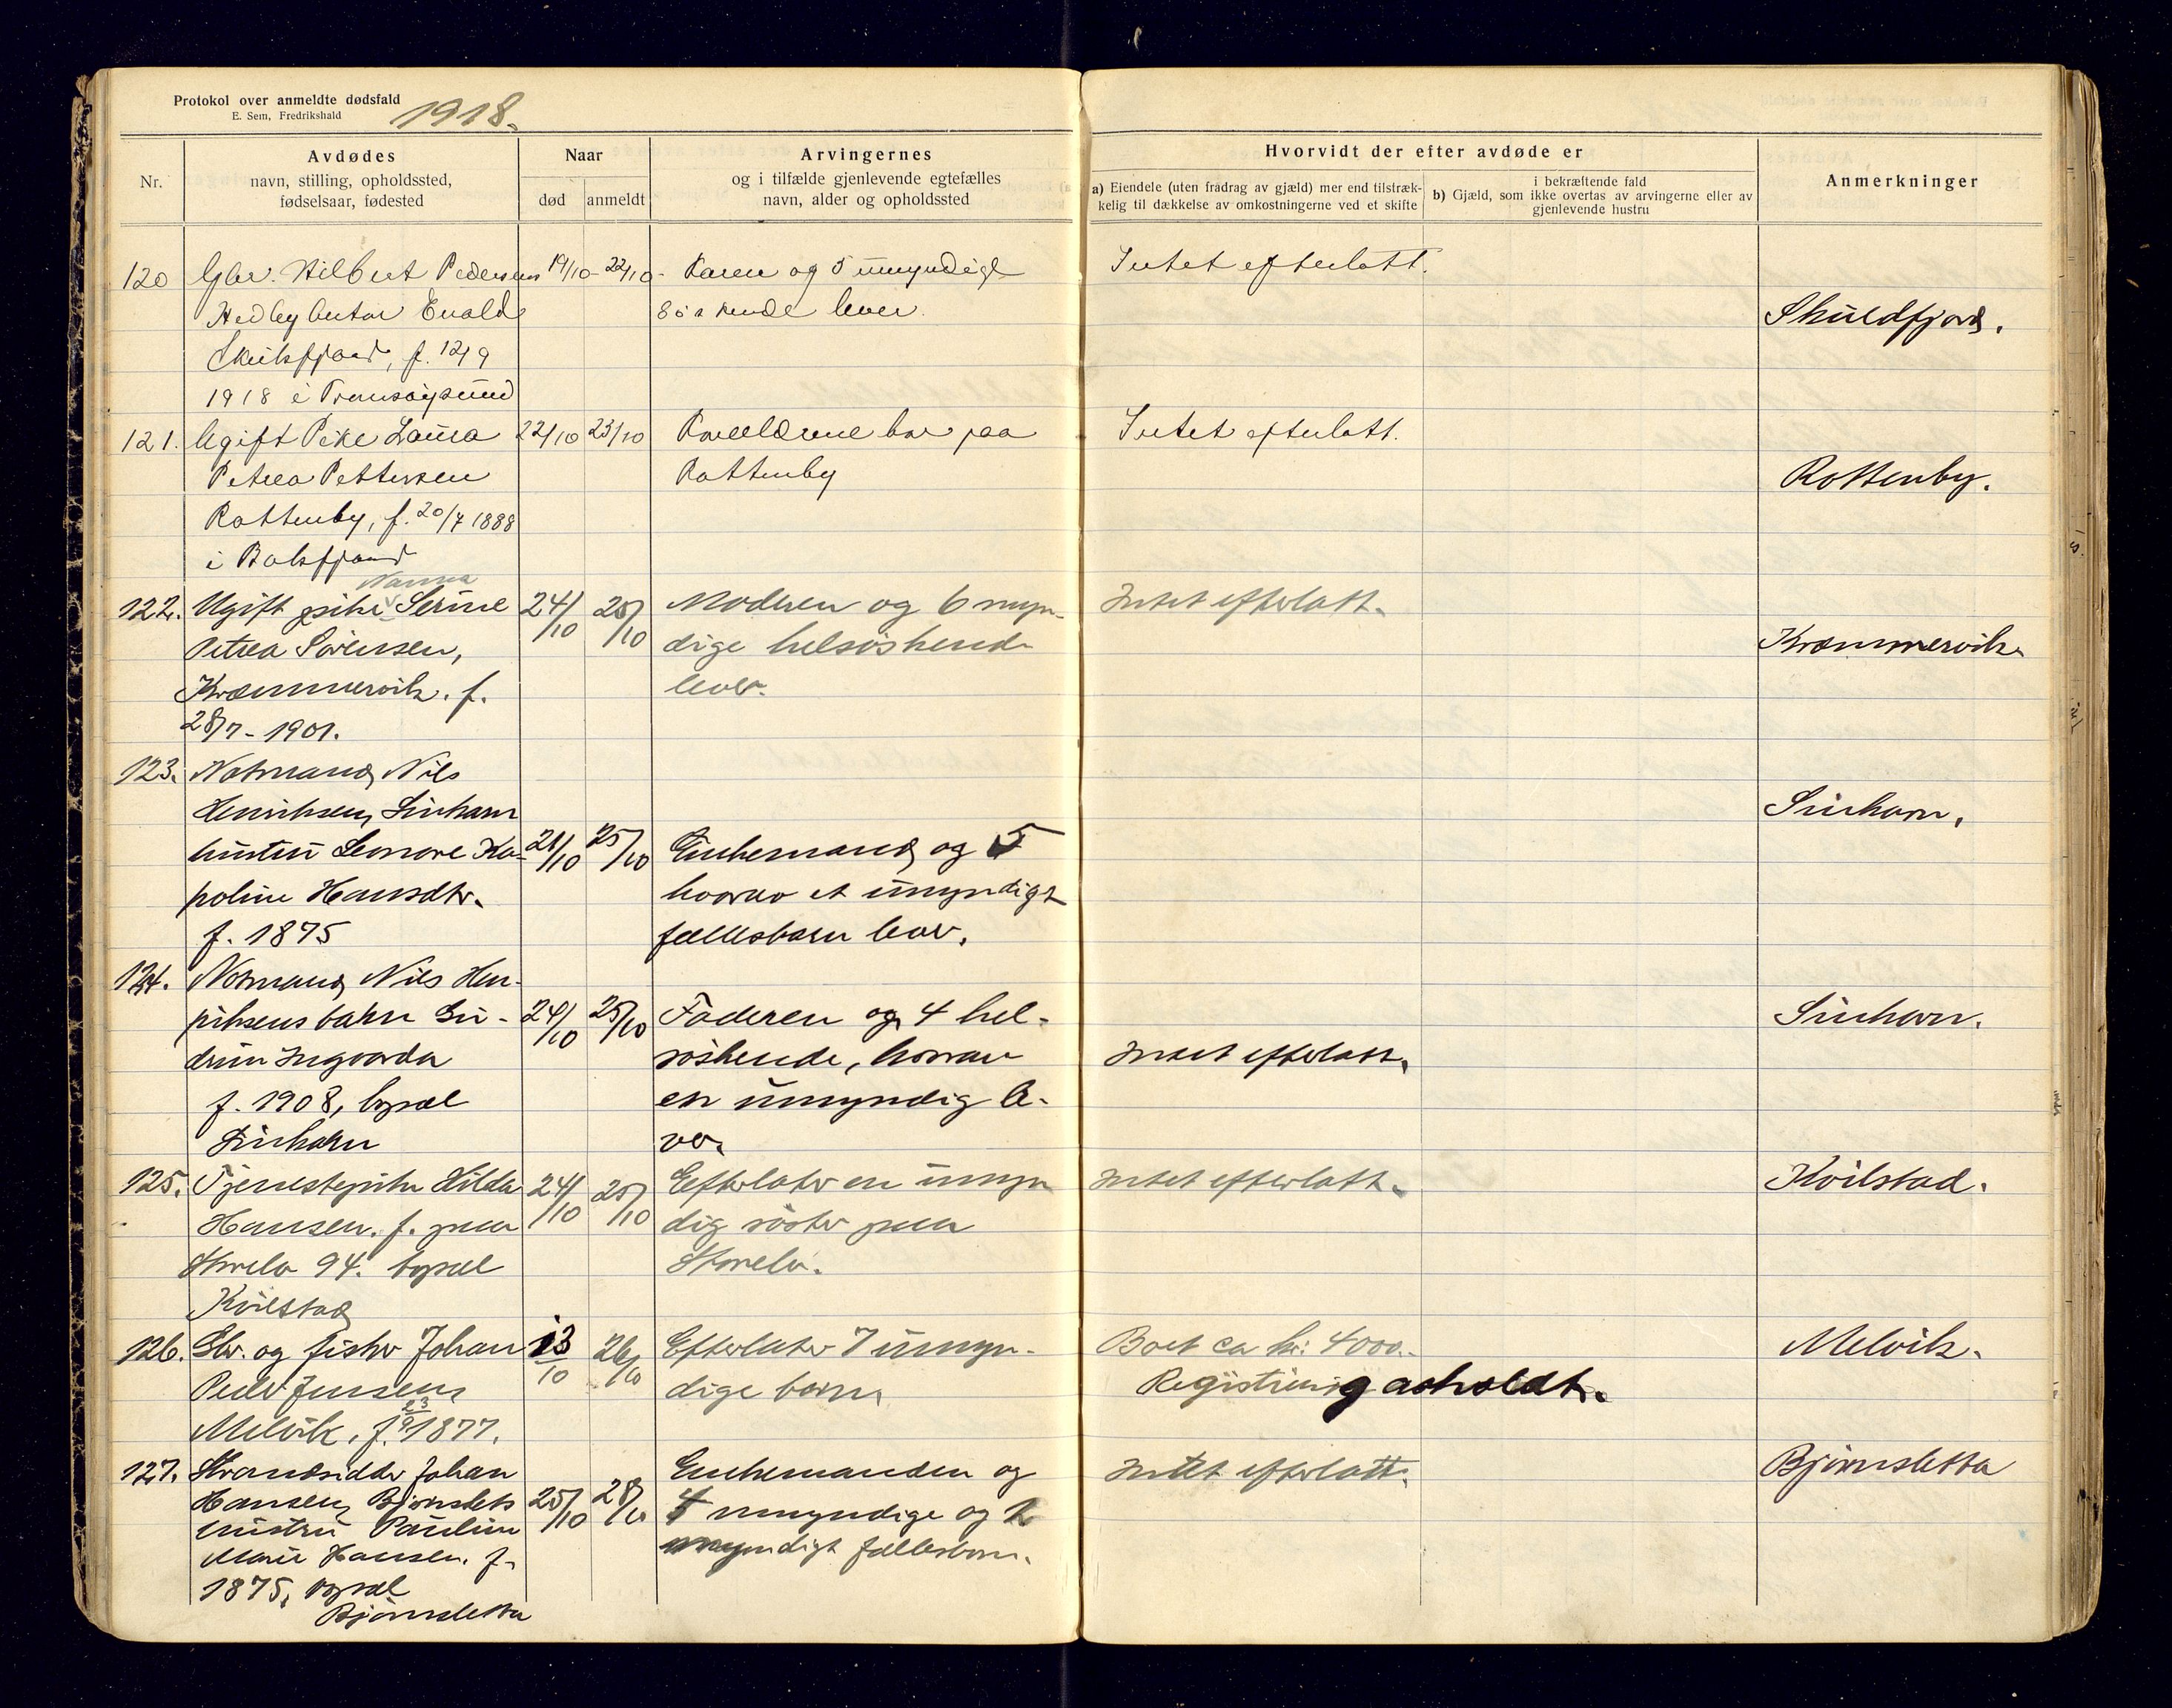 Protokol over anmeldte dødsfald
E. Sem, Fredrikshald
1918.
Nr.
Avdødes
navn, stilling, opholdssted,
fødselsaar, fødested
Naar
død
anmeldt
Arvingernes
og i tilfælde gjenlevende egtefælles
navn, alder og opholdssted
Hvorvidt der efter avdøde er
a) Eiendele (uten fradrag av gjæld) mer end tilstræk-
kelig til dækkelse av omkostningerne ved et skifte
i bekræftende fald
b) Gjæld, som ikke overtas av arvingerne eller av
gjenlevende hustru
Anmerkninger
120 Gbr. Hilbert Pedersens 19/10 22/10 og 5 umyndige Intet efterlatt.
Evald søskende lever. Skuldfjord.
f. 12/9
1918 i Tromsøysund
121. Ugift Pike Laura 22/10 23/10 Forældrene bor paa Intet efterlatt.
Petrea Pettersen Rottenby Rottenby.
Rottenby, f. 20/7 1888
i Balsfjord
Nanna
122. Ugift pike Serine 24/10 25/10 Moderen og 6 myn- Intet efterlatt.
Petrea Sørensen, dige helsøskende Kræmmervik
Kræmmervik. f. lever.
28/7 - 1901.
123. Notmand Nils
Henriksen,
hustru Leonore Ka- 21/10 25/10 Enkemand og 5
poline Hansdtr. hvorav et umyndigt
f. 1875 fællesbarn lever.
124. Notmand Nils Hen-
riksens barn Gu- 24/10 25/10 Faderen og 4 hel-
drun Ingvarda søskende, hvorav Intet efterlatt.
f. 1908, bopæl en umyndig le-
ver.
125. Tjenestepike Hilda 24/10 25/10 Efterlater en umyn Intet efterlatt. Kvilstad.
Hansen. f. paa dig søster paa
94. bopæl
Kvilstad
126. Gbr. og fisker Johan 13/10 26/10 Efterlater 7 umyn- Boet ca kr: 4000.- Melvik.
Peder Jensen, dige børn. Registrering avholdt.
Melvik, f. 23/9 1877.
127. Strandsidder Johan Enkemanden og Intet efterlatt. Bjørnsletta
Hansen, Bjørnslets 25/10 28/10 4 umyndige og 2
hustru Pauline umyndigt fællesbarn.
Marie Hansen. f.
1875, bopæl
Bjørnsletta